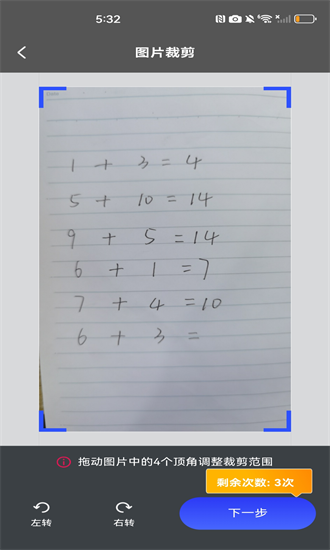 5:32
图片裁剪
1 + 3 = 4
5 + 10 = 14
9 + 5 = 14
6 + 1 = 7
7 + 4 = 10
6 + 3 =
拖动图片中的4个顶角调整裁剪范围
剩余次数: 3次
左转
右转
下一步